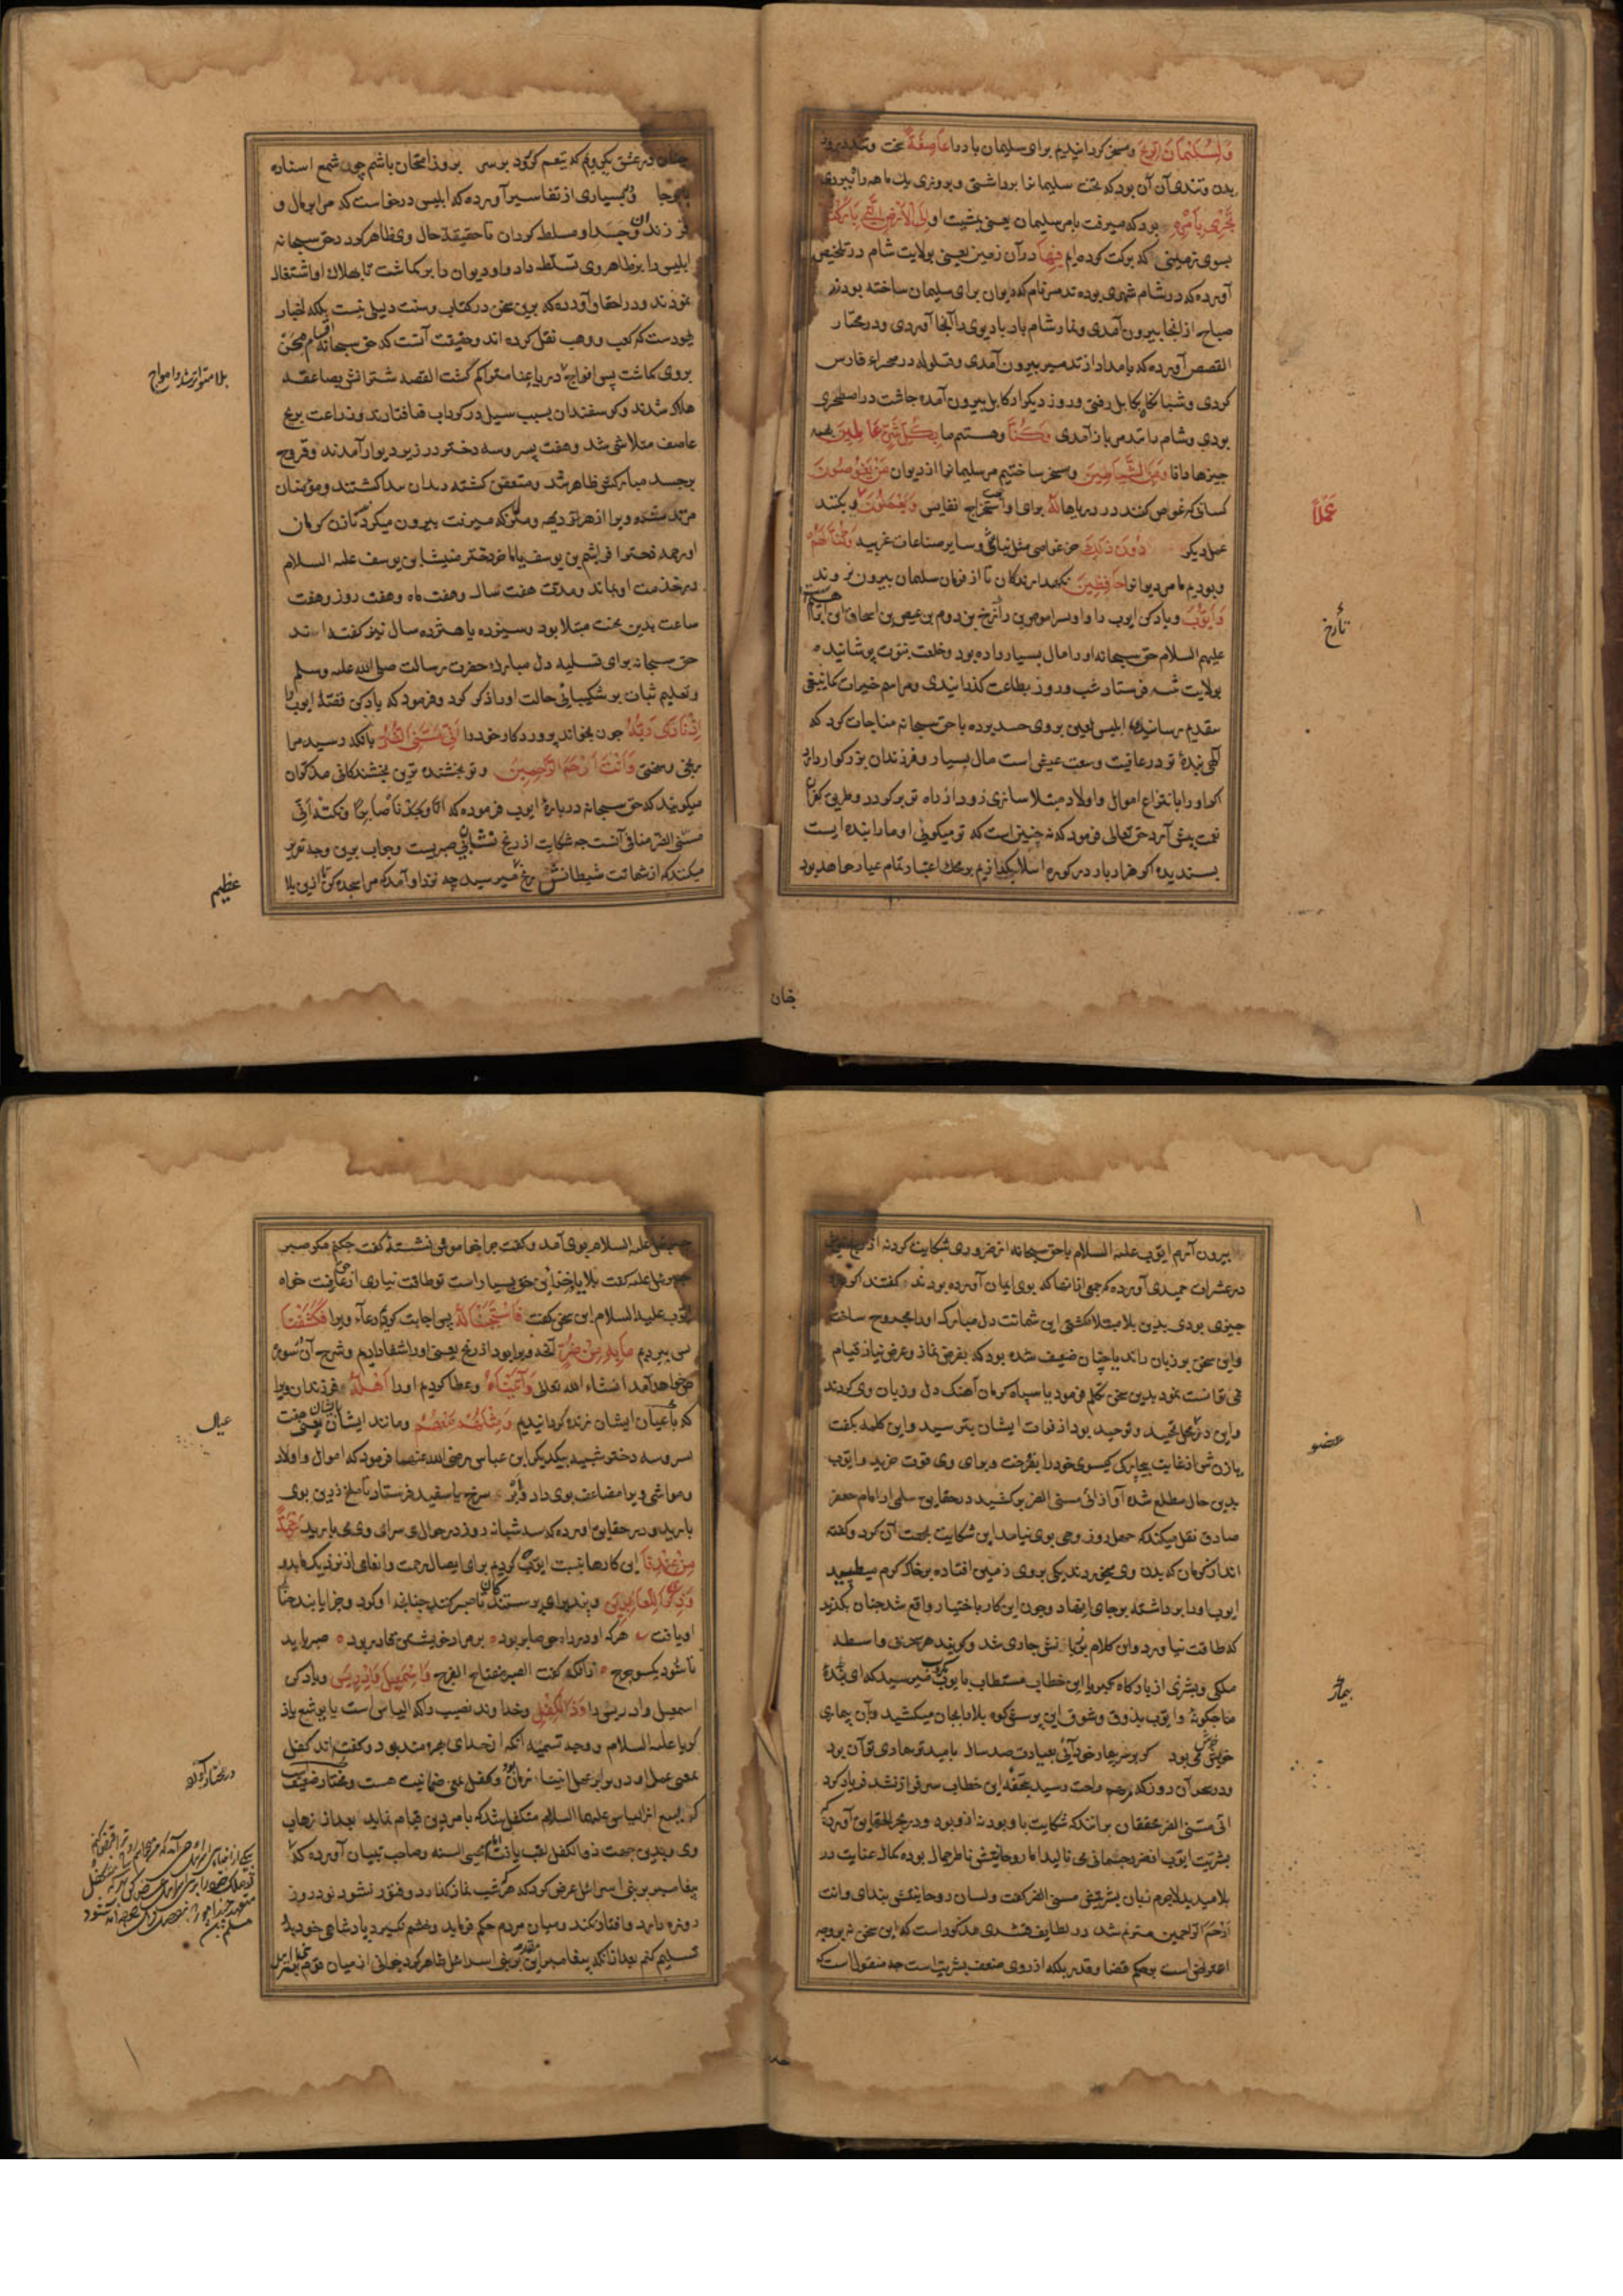 ولسلیمان الریح و مسخر کردانیدیم برای سلیمان باد را عاصفة سخت و تند
بدن و تندی آن آن بود که تخت سلیمانرا برداشتی و بروزی یك ماهه راه ببردی
تجری بأمره بود که میرفت بامر سلیمان یعنی بمشیت او الی الأرض التی بارکنا
بسوی زمینی که برکت کرده ایم فیها در آن زمین یعنی بولایت شام در تلخیص
آورده که در شام شهری بوده تدمر نام که دیوان برای سلیمان ساخته بودند
صباح از انجا بیرون آمدی و نماز شام باز باد ویرا آنجا آوردی و در مختار
القصص آورده که بامداد از تدمیر بیرون آمدی و قیلوله در صحراء فارس
کردی و شبانکاه بکابل رفتی و روز دیکر از کابل بیرون آمده چاشت در اصطخری
بودی و شام با تدمر باز آمدی وکنا و هستیم ما بکل شیء عالمین بهمه
چیزها دانا ومن الشیاطین و مسخر ساختیم مر سلیمانرا از دیوان من یغوصون
کسانی که غواصی کنند در دریاها له برای او استخراج نفایس ویعملون و بکنند
عملا
عمل دیکر دون ذلك جز غواصی مثل بنائی و سایر صناعات غریبه وکنا لهم
و بودیم ما مر دیوانرا حافظین نکهدارندکان تا از فرمان سلیمان بیرون نروند
وایوب و یاد کن ایوب را و او پسر اموص بن رانرخ بن روم بن عیص بن اسحاق ابن ابراهیم
تارخ
علیهم السلام حق سبحانه او را مال بسیار داده بود و خلعت نبوت پوشانیده
بولایت شـ فرستاد شب و روز بطاعت کذرانیدی و مراسم خیرات کما ینبغی
بتقدیم رسانیده ابلیس لعین بروی حسد بوده با حق سبحانه مناجات کرد که
الهی بنده تو در عافیت و سعت عیش است مال بسیار و فرزندان بزرکوار دارد
اکر او را بانتزاع اموال و اولاد مبتلا سازی زود از راه تو بر کردد و طریق کفران
نعمت پیش آرد حق تعالی فرمود که نه چنین است که تو میکوئی او ما را بنده ایست
پسندیده اکر هزار بار در کوره ابتلا بکدازیم بر محك اعتبار تمام عیار خواهد بود
چنان
چنان در عشق یکرویم که تیغم کر زود بر سر بروز امتحان باشم چون شمع استاده
پابرجا و در بسیاری از تفاسیر آورده که ابلیس درخواست که مرا بر مال و
فرزندان و جسد او مسلط کردان تا حقیقة حال وی ظاهر کردد حق سبحانه
ابلیس را بر ظاهر وی تسلط داد و او دیوان را بر کماشت تا بهلاك او اشتغال
نمودند و در احقاق آورده که برین سخن در کتاب و سنت دلیلی نیست بلکه اخبار
یهودست که کعب و وهب نقل کرده اند و حقیقت آنست که حق سبحانه اقسام محن
بروی کماشت پس افواج دریاء عنا متراکم کشت القصه شترانش بصاعقه
بلا متواتر شد و امواج
هلاك شدند و کوسفندان بسبب سیل در کرداب فنا افتادند و زراعت بریح
عاصف متلاشی شد و هفت پسر و سه دختر در زیر دیوار آمدند و قروح
بر جسد مبارکش ظاهر شد و متعفن کشته دیدان پیدا کشتند و مؤمنان
مرتد شدند ویرا از هر ده و مکان که میرفت بیرون میکردند تا زن کرمان
او رحمه دختر افراثیم بن یوسف یا ماخر دختر میشا بن یوسف علیه السلام
در خدمت او بماند و مدت هفت سال و هفت ماه و هفت روز و هفت
ساعت بدین محنت مبتلا بود و سیزده یا هشرده سال نیز کفته اند
حق سبحانه برای تسلیه دل مبارك حضرت رسالت صلی الله علیه وسلم
و تعلیم ثبات بر شکیبائی حالت او را ذکر کرد و فرمود که یاد کن قصة ایوب را
اذ نادی ربه چون بخواند پروردکار خود را انی مسنی الضر بآنکه رسید مرا
رنجی و سختی وانت ارحم الراحمین و تو بخشنده ترین بخشندکانی مذکران
میکویند که حق سبحانه در باره ایوب فرموده که انا وجدناه صابرا و نکته انی
مسنی الضر منافی آنست چه شکایت از رنج نشان بی صبریست و جواب برین وجه تقریر
میکنند که از شماتت شیطانش رنج میرسید چه نزد او آمد که مرا سجده کن تا ازین بلا
عظیم
بیرون آرم ایوب علیه السلام با حق سبحانه از ضرر وی شکایت کرد نه از
در عشرات حمیدی آورده که جمعی از آنها که بوی ایمان آورده بودند کفتند اکر در
چیزی بودی بدین بلا مبتلا نکشتی این شماتت دل مبارك او را مجروح ساخت
و این سخن بر زبان راند یا چنان ضعیف شده بود که بفرض نماز و عرض نیاز قیام
نمی توانست نمود بدین سخن تکلم فرمود یا سپاه کرمان آهنك دل و زبان وی کردند
و این دو محل تمجید و توحید بود از فوات ایشان بترسید و این کلمه بکفت
عضو
یا زنش از غایت بیچارکی کیسوی خود را بفروخت و برای وی قوت خرید و ایوب
بدین حال مطلع شده آواز انی مسنی الضر بر کشید در حقایق سلمی از امام جعفر
صادق نقل میکند که چهل روز وحی بوی نیامد این شکایت بجهت آن کرد و کفته
اند از کرمان که بدن وی میخوردند یکی بروی زمین افتاده بر خاك کرم میطپید
ایوب او را برداشته بر جای نهاد و چون این کار باختیار واقع شد چنان بکزید
که طاقت نیاورد و این کلام بر زبانش جاری شد و کویند هر سخن واسطه
ملکی و بشری از بارکاه کبریا این خطاب مستطاب بایوب میرسید که ای بنده
بیمار
ما چکونۀ و ایوب بذوق و شوق این پرسش کوه بلا را بجان میکشید و بآن بیماری
خوش می بود کر بر سر بیمار خود آئی بعیادت صد سال بامید تو بیماری توان بود
و در سحر آن روز که مرهم راحت رسید بتحفه این خطاب سرفراز نشد فریاد کرد
انی مسنی الضر محققان بر آنند که شکایت باو بود نه ازو بود و در بحر الحقایق آورده که
بشریت ایوب از ضر جسمانی می نالید اما روحانیتش ناظر جمال بوده کمال عنایت در
بلا میدید لاجرم زبان بشریتش مسنی الضر کفت و لسان روحانیتش بندای و انت
ارحم الراحمین مترنم شد در لطایف قشیری مذکور است که این سخن نه بر وجه
اعتراض است بر حکم قضا و قدر بلکه از روی ضعف بشریت است چه منقول است که
علیه السلام بوی آمد و کفت چرا خاموش نشستۀ کفت چکنم مکر صبر
جبرئیل علیه کفت بلا یا خزاین حق بسیار است تو طاقت نیاری از حق عافیت خواه
ایوب علیه السلام این سخن کفت فاستجبنا له پس اجابت کردیم دعاء ویرا فکشفنا
پس ببردیم ما به من ضر آنچه ویرا بود از رنج یعنی او را شفا دادیم و شرح آن سوره
خواهد آمد انشاء الله تعالی وآتیناه و عطا کردیم او را اهله فرزندان ویرا
که باعیان ایشان زنده کردانیدیم ومثلهم معهم و مانند ایشان با ایشان یعنی هفت
عیال
پسر و سه دختر شبیه بیکدیکر ابن عباس رضی الله عنهما فرمود که اموال و اولاد
و مواشی ویرا مضاعف بوی داد و ابر سرخ یا سفید فرستاد تا ملخ زرین بوی
بارید و در حقایق آورده که سه شبانه روز در حوالی سرای وی می بارید رحمة
من عندنا این کارها بنسبت ایوب کردیم برای ایصال رحمت و انعام از نزدیك ما بدو
وذکری للعابدین و پند برای پرستندکان تا صبر کنند چنانچه او کرد و جزا یابند چنانکه
او یافت هر که او در راه حق صابر بود بر مراد خویشتن قادر بود صبر باید
تا شود یکسو حرج زانکه کفت الصبر مفتاح الفرج واسمعیل وادریس و یاد کن
اسمعیل و ادریس را وذا الکفل و خداوند نصیب را که الیاس است یا یوشع یا ذ
کریا علیه السلام و وجه تسمیه آنکه از خدای بهره مند بود و کفته اند کفل
در مختار آورده
بمعنی ضعف عمل او دو برابر عمل انبیاء زمان بود و کفل بمعنی ضمانیت هست و مختار ضعیف
که یسع از الیاس علیهما السلام متکفل شد که بامر دین قیام نماید بعد از ذهاب
وی و بدین جهت ذو الکفل لقب یافت امام محیی السنه و صاحب تبیان آورده که
پیغامبر بر بنی اسرائیل عرض کرد که هر که شب نماز کذارد و فتور نشود و در روز
روزه دارد و افطار نکند و میان مردم حکم فرماید و خشم نکیرد پادشاهی خود بدو
تسلیم کنم بعد از آنکه پیغامبر این سخن بر بنی اسرائیل ظاهر کرد جوانی از میان قوم